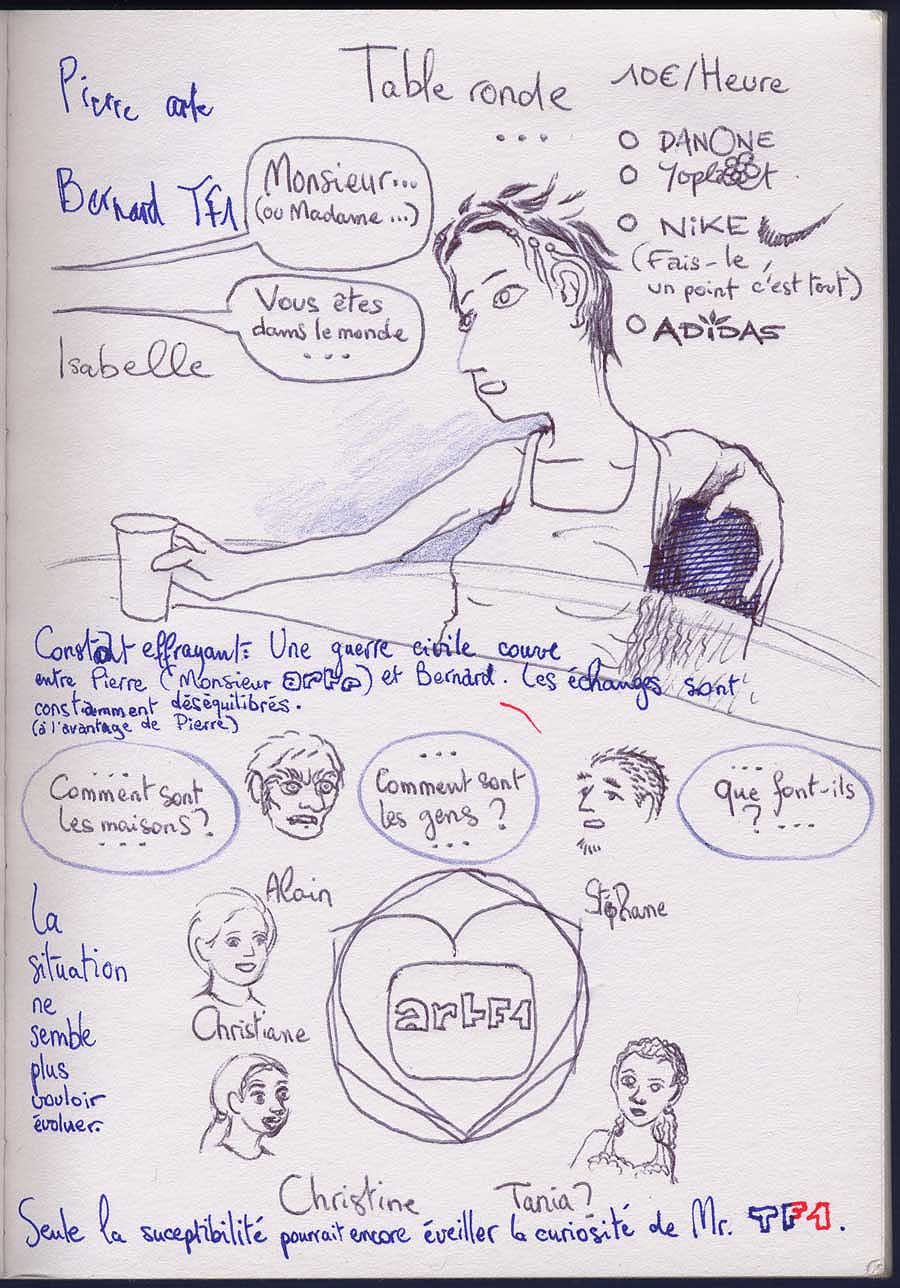 Pierre arte
Table ronde
...
10€/Heure
DANONE
Yoplait
NiKE
(Fais-le,
un point c'est tout)
ADiDAS
Bernard TF1
Monsieur...
(ou Madame...)
Vous êtes
dans le monde
...
Isabelle
Constat effrayant: Une guerre civile couve
entre Pierre (Monsieur arte) et Bernard. Les échanges sont
constamment déséquilibrés.
(à l'avantage de Pierre)
...
Comment sont
les maisons?
...
...
Comment sont
les gens ?
...
...
que font-ils
? ...
Alain
Stéphane
La
situation
ne
semble
plus
vouloir
évoluer.
artF1
Christiane
Christine
Tania?
Seule la suceptibilité pourrait encore éveiller la curiosité de Mr. TF1.